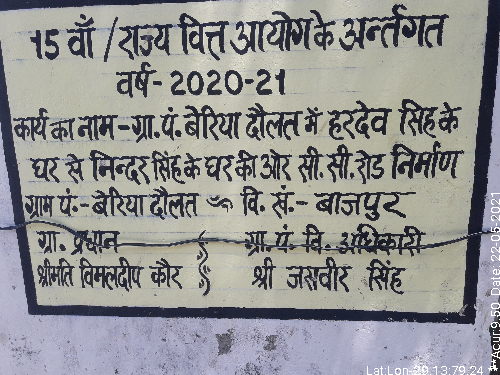 15 वाँ / राज्य वित्त आयोग के अर्न्तगत
वर्ष - 2020-21
कार्य का नाम - ग्रा. पं. बेरिया दौलत में हरदेव सिंह के
घर से मिन्दर सिंह के घर की ओर सी. सी. रोड निर्माण
ग्राम पं.- बेरिया दौलत वि. सं.- बाजपुर
ग्रा. प्रधान ग्रा. पं. वि. अधिकारी
श्रीमति विमलदीप कौर श्री जसवीर सिंह
Lat:Lon-29.13:79.24
**Acur:9.50 Date: 22-05-2021